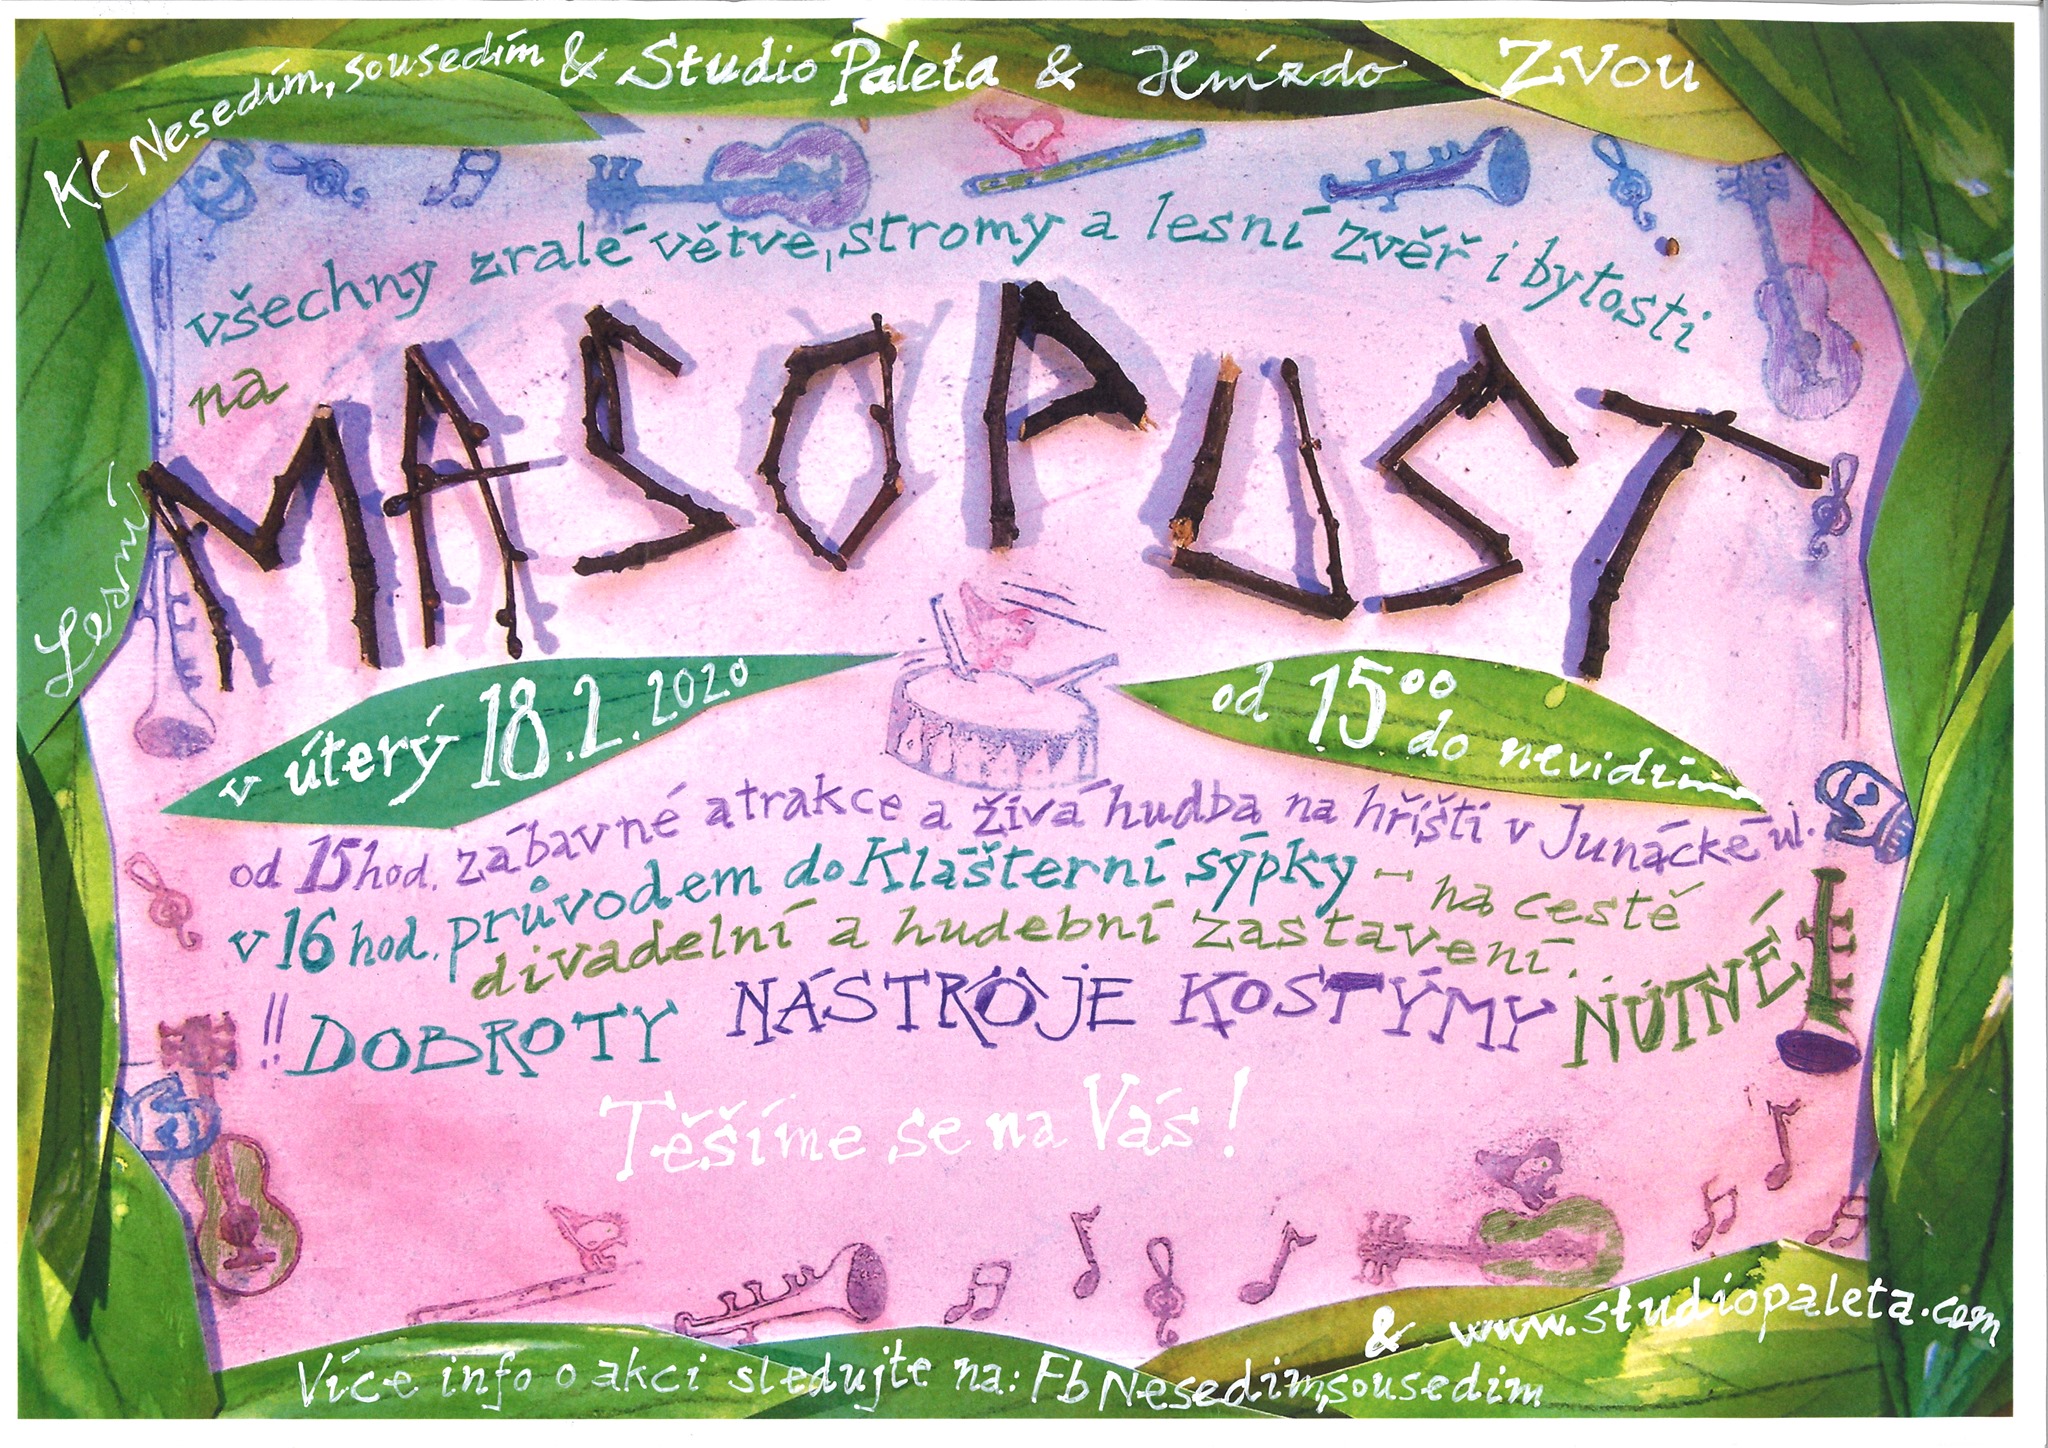 KC Nesedím, sousedím & Studio Paleta & Hnízdo Zvou
všechny zralé větve, stromy a lesní zvěř i bytosti
na
Lesní
MASOPUST
v úterý 18.2.2020
od 15⁰⁰ do nevidím
od 15hod. zábavné atrakce a živá hudba na hřišti v Junácké ul.
v 16 hod. průvodem do Klášterní sýpky - na cestě
divadelní a hudební zastavení.
!! DOBROTY NÁSTROJE KOSTÝMY NUTNÉ
Těšíme se na Vás!
Více info o akci sledujte na: Fb Nesedim,sousedim
& www.studiopaleta.com